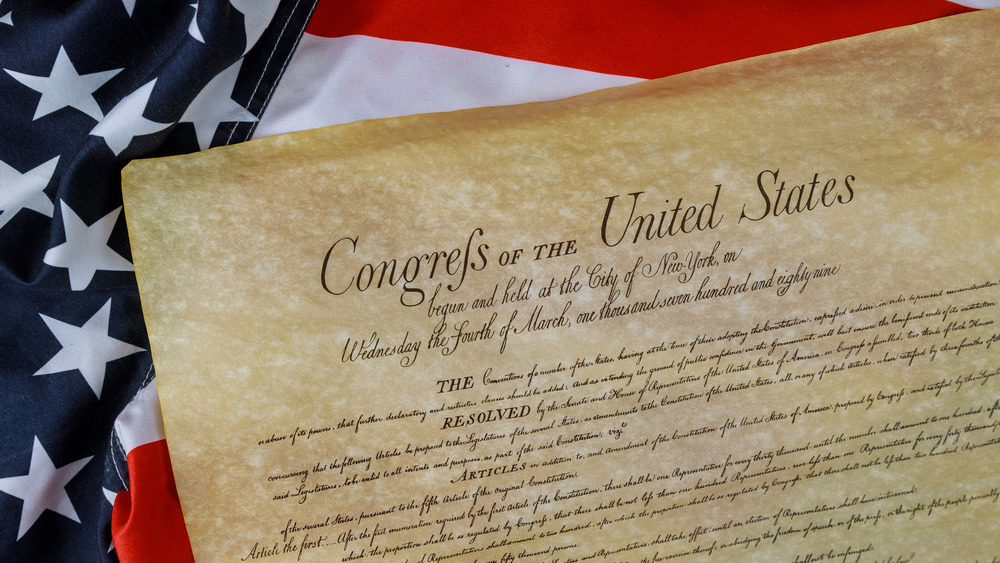 Congreſs OF THE United States
begun and held at the City of New-York, on
Wednesday the Fourth of March, one thousand seven hundred and eighty nine
THE Conventions of a number of the States, having at the time of their adopting the Constitution, expreſsed a desire, in order to prevent misconstruction
or abuse of its powers, that further declaratory and restrictive clauses should be added: And as extending the ground of public confidence in the Government, will best ensure the beneficent ends of its institution
RESOLVED by the Senate and House of Representatives of the United States of America, in Congreſs aſsembled, two thirds of both Houses
concurring, that the following Articles be proposed to the Legislatures of the several States, as amendments to the Constitution of the United States, all, or any of which Articles, when ratified by three fourths of the
said Legislatures, to be valid to all intents and purposes, as part of the said Constitution, vizt
ARTICLES in addition to, and amendment of the Constitution of the United States of America, proposed by Congreſs, and ratified by the Legislatures
of the several States, pursuant to the fifth Article of the original Constitution.
Article the first.... After the first enumeration required by the first Article of the Constitution, there shall be one Representative for every thirty thousand, until the number shall amount to one hundred, after
which, the proportion shall be so regulated by Congreſs, that there shall be not leſs than one hundred Representatives, nor leſs than one Representative for every forty thousand
of Representatives shall amount to two hundred, after which the proportion shall be so regulated by Congreſs, that there shall not be leſs than two hundred Representatives
fifty thousand persons
and Representatives, shall take effect, until an election of Representatives shall have intervened.
the free exercise thereof, or abridging the freedom of speech, or of the preſs, or the right of the people peaceably
shall not be infringed.